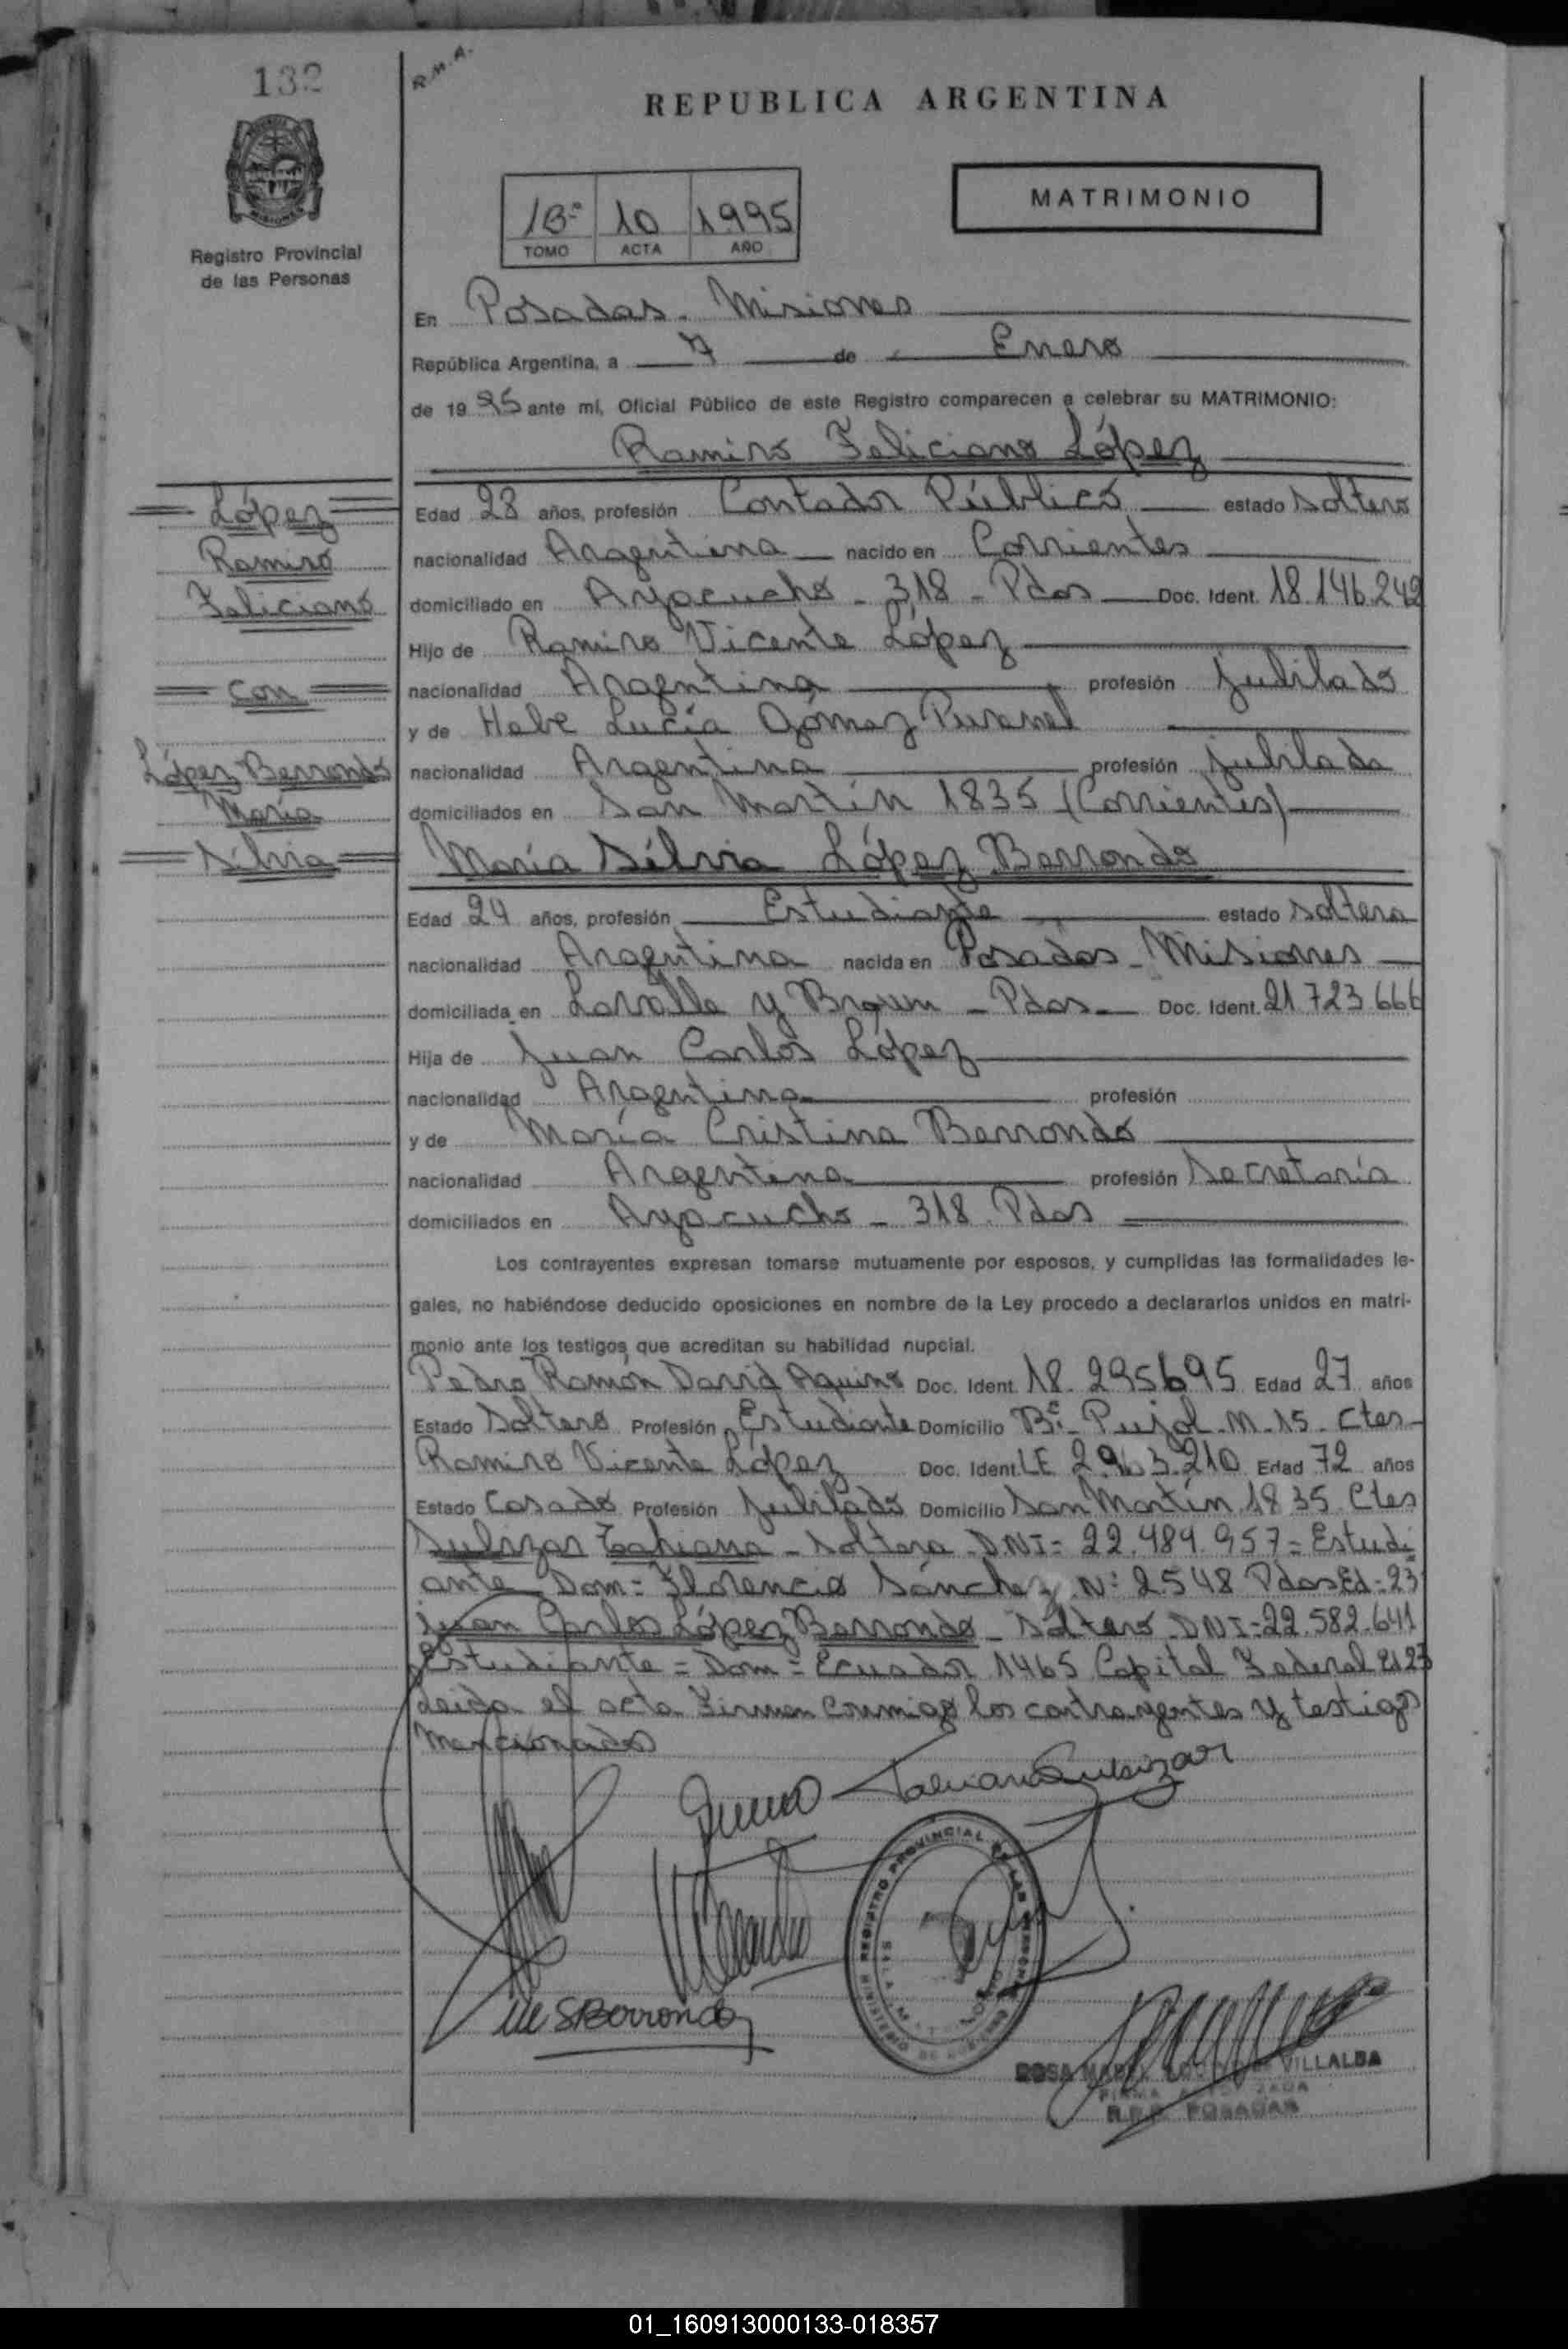 132
R.M.A.
REPUBLICA ARGENTINA
MATRIMONIO
10 1995
TOMO ACTA AÑO
Registro Provincial
de las Personas
En Posadas - Misiones
República Argentina, a 7 de Enero
de 1995 ante mí, Oficial Público de este Registro comparecen a celebrar su MATRIMONIO:
Ramiro Feliciano López
López
Ramiro
Feliciano
con
López Berrondo
María
Silvia
Edad 28 años, profesión Contador Público estado soltero
nacionalidad Argentina nacido en Corrientes
domiciliado en Ayacucho - 318 - Pdas Doc. Ident. 18.146.242
Hijo de Ramiro Vicente López
nacionalidad Argentina profesión jubilado
y de Hebe Lucía Gómez
nacionalidad Argentina profesión jubilada
domiciliados en San Martín 1835 (Corrientes)
María Silvia López Berrondo
Edad 24 años, profesión Estudiante estado soltera
nacionalidad Argentina nacida en Posadas - Misiones
domiciliada en Lavalle y Brown - Pdas - Doc. Ident. 21.723.666
Hija de Juan Carlos López
nacionalidad Argentina profesión
y de María Cristina Berrondo
nacionalidad Argentina profesión Secretaría
domiciliados en Ayacucho - 318 - Pdas
Los contrayentes expresan tomarse mutuamente por esposos, y cumplidas las formalidades le-
gales, no habiéndose deducido oposiciones en nombre de la Ley procedo a declararlos unidos en matri-
monio ante los testigos que acreditan su habilidad nupcial.
Pedro Ramón David Aquino Doc. Ident. 18.295695 Edad 27 años
Estado Soltero Profesión Estudiante Domicilio Bº Pujol - M - 15 - Ctes -
Ramiro Vicente López Doc. Ident. LE 2.963.210 Edad 72 años
Estado Casado Profesión Jubilado Domicilio San Martín 1835 Ctes
- soltera - DNI = 22.489.957 = Estudi
ante Dom = Florencio Sánchez Nº 2548 Pdas Ed = 23
Juan Carlos López Berrondo - Soltero - DNI = 22.582.641
Estudiante = Dom = Ecuador 1465 Capital Federal
Leída el acta Firman conmigo los contrayentes y testigos
mencionados
REGISTRO PROVINCIAL DE LAS PERSONAS
ROSA MABEL VILLALBA
R.P.P. POSADAS
01_160913000133-018357